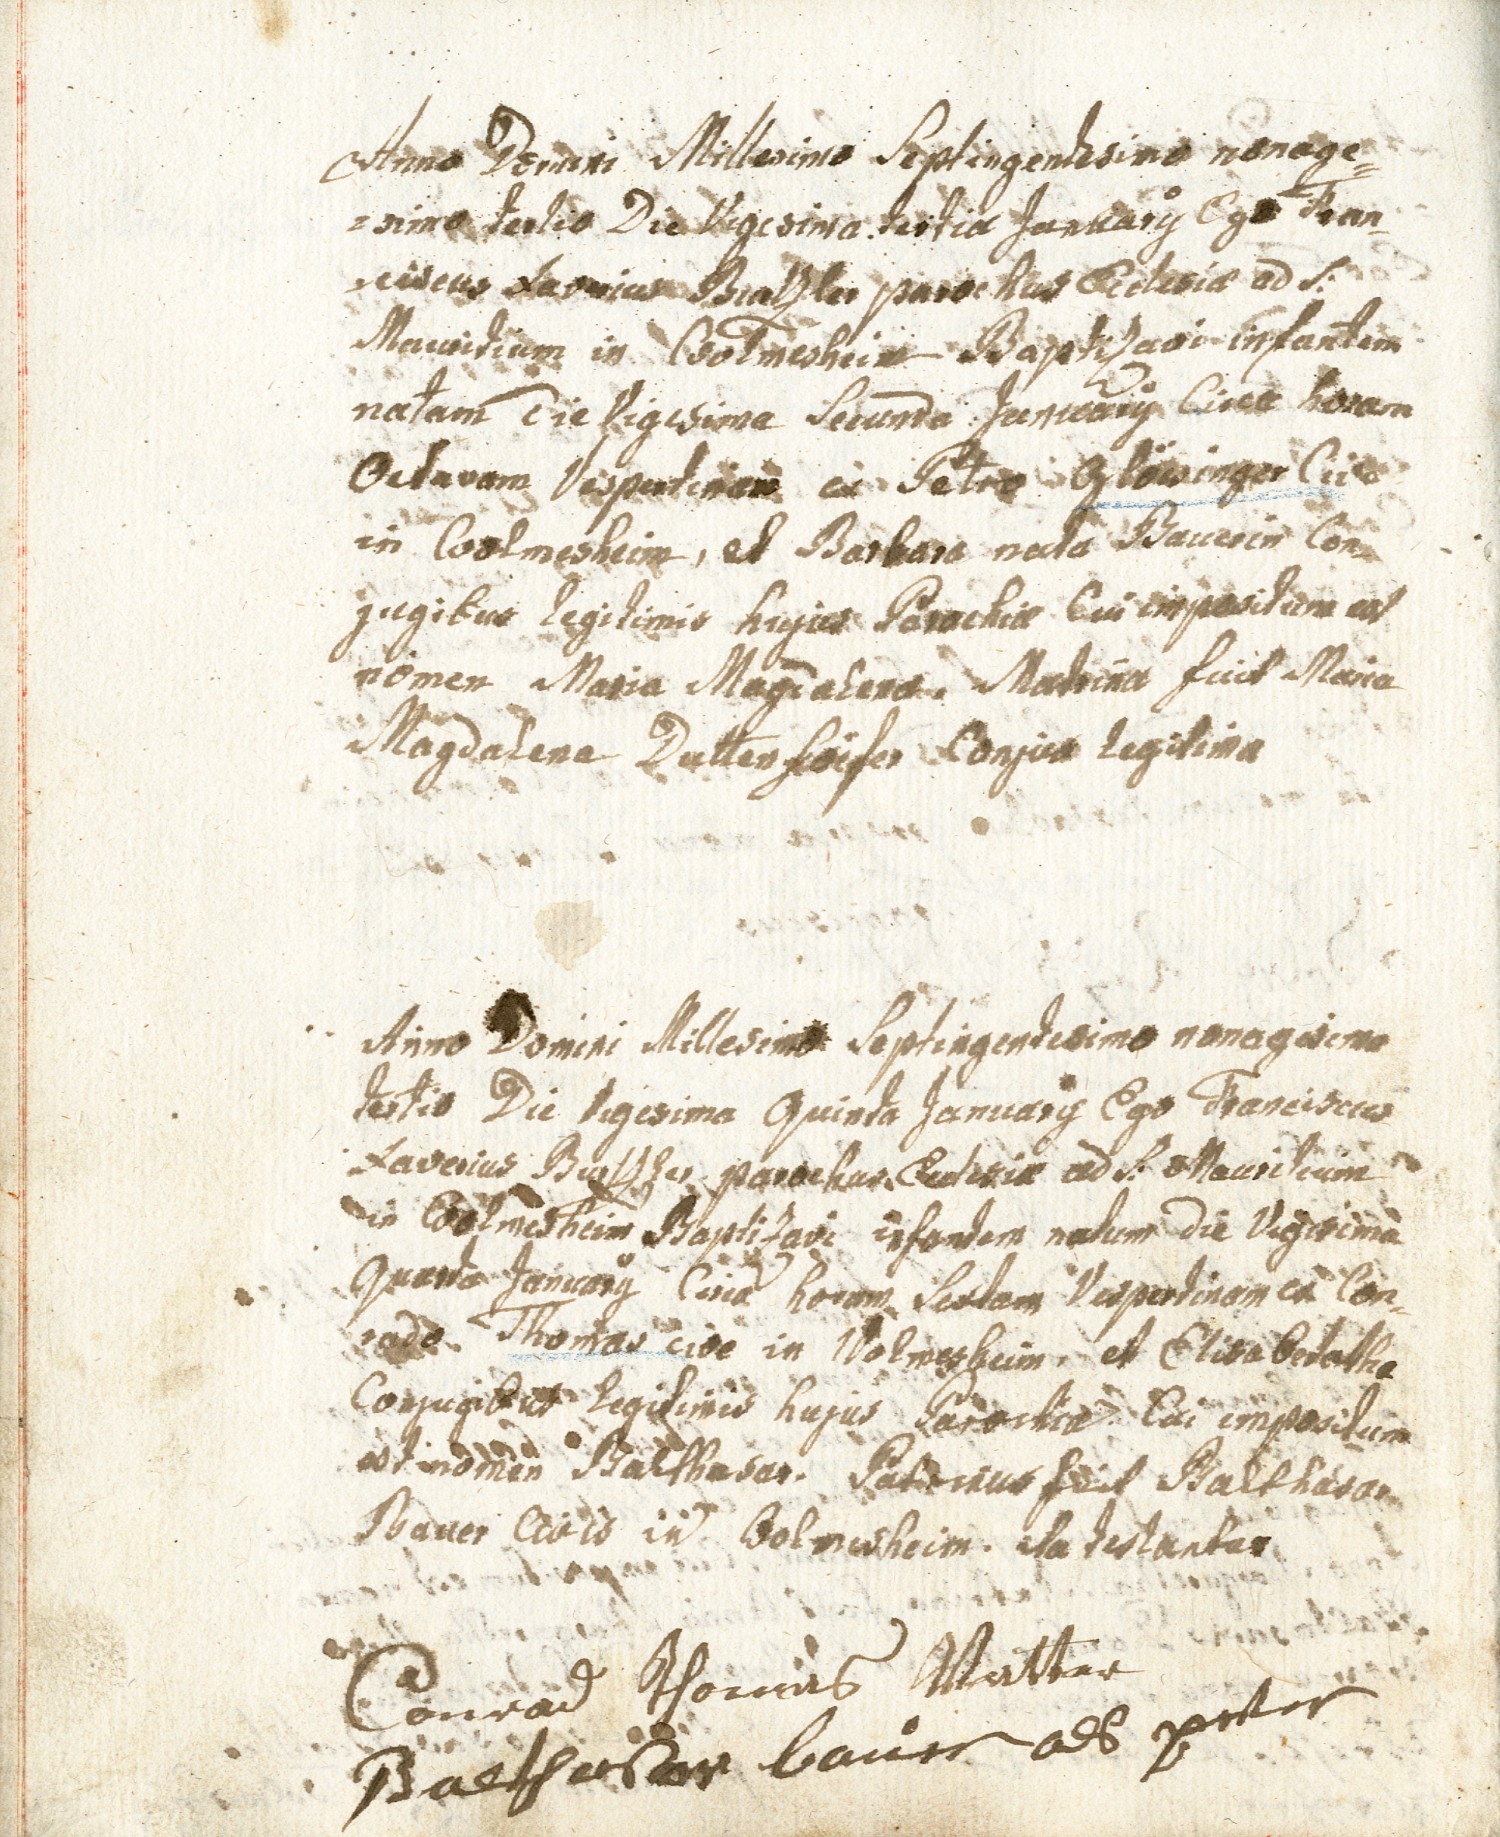 Anno Domini Millesimo Septingentesimo nonage=
=simo tertio Die Vigesima tertia Januarÿ Ego Fran-
ciscus Xaverius parochus Eclesiæ ad S.
Mauritium in Wolmesheim Baptizavi infantem
natam Die Vigesima Secunda Januarÿ Circa horam
Octavam Vespertinam ex Petro Glösinger Cive
in Wolmesheim, et Barbara nata Bauerin Con-
jugibus legitimis hujus Parochiæ Cui impositum est
nomen Maria Magdalena. Matrina fuit Maria
Magdalena Duttenhöfer Conjux legitima
Anno Domini Millesimo Septingentesimo nonagesimo
tertio Die Vigesima Quinta Januarÿ Ego Franciscus
Xaverius parochus Eclesiæ ad S. Mauritium
in Wolmesheim Baptizavi infantem natum Die Vigesima
Quarta Januarÿ Circa horam Sextam Vespertinam ex Con=
rado Thomas cive in Volmesheim. et Elisabetatha
Conjugibus legitimis hujus Parochiæ Cui impositum
est nomen Balthasar. Patrinus fuit Balthasar
Bauer Civis in Wolmesheim. ita testantur
Conrad Thomas Vatter
Balthasar bauer als peter